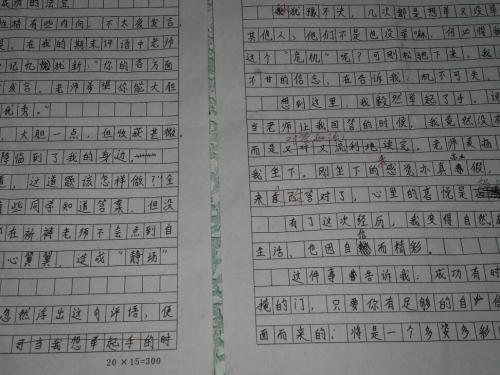 成功的法宝
性格有些内向，不太爱发言
是，在我的期末评语中老师
记忆犹新：“你的各方面
发言。老师希望你能大胆
优秀。”
大胆一点，但收获甚微。
降临到了我的身边
道，这道题该怎样做？”全
有些同学知道答案，但没
都在祈祷老师不会点到自
心翼翼，造成“静场”
忽然浮出这句评语，便
可当我想举起手的时
20×15=300
机不失，几次都是想举又没举
其他人，他们不是也没举嘛，何必
这个“危机”呢？可刚松驰下来，我
不甘的信念，在告诉我：机不可失，
想到这里，我毅然举起了手。
当老师让我回答的时候，我竟然没有
而是又对又流利地读完。老师表扬
我坐下。刚坐下的感觉亦真亦假，
来自己答对了，心里的喜悦是
有了这次经历，我变得自然
生活，也因自信而精彩。
这件事告诉我：成功有时
掩的门，只要你有足够的自信
面而来的，将是一个多姿多彩